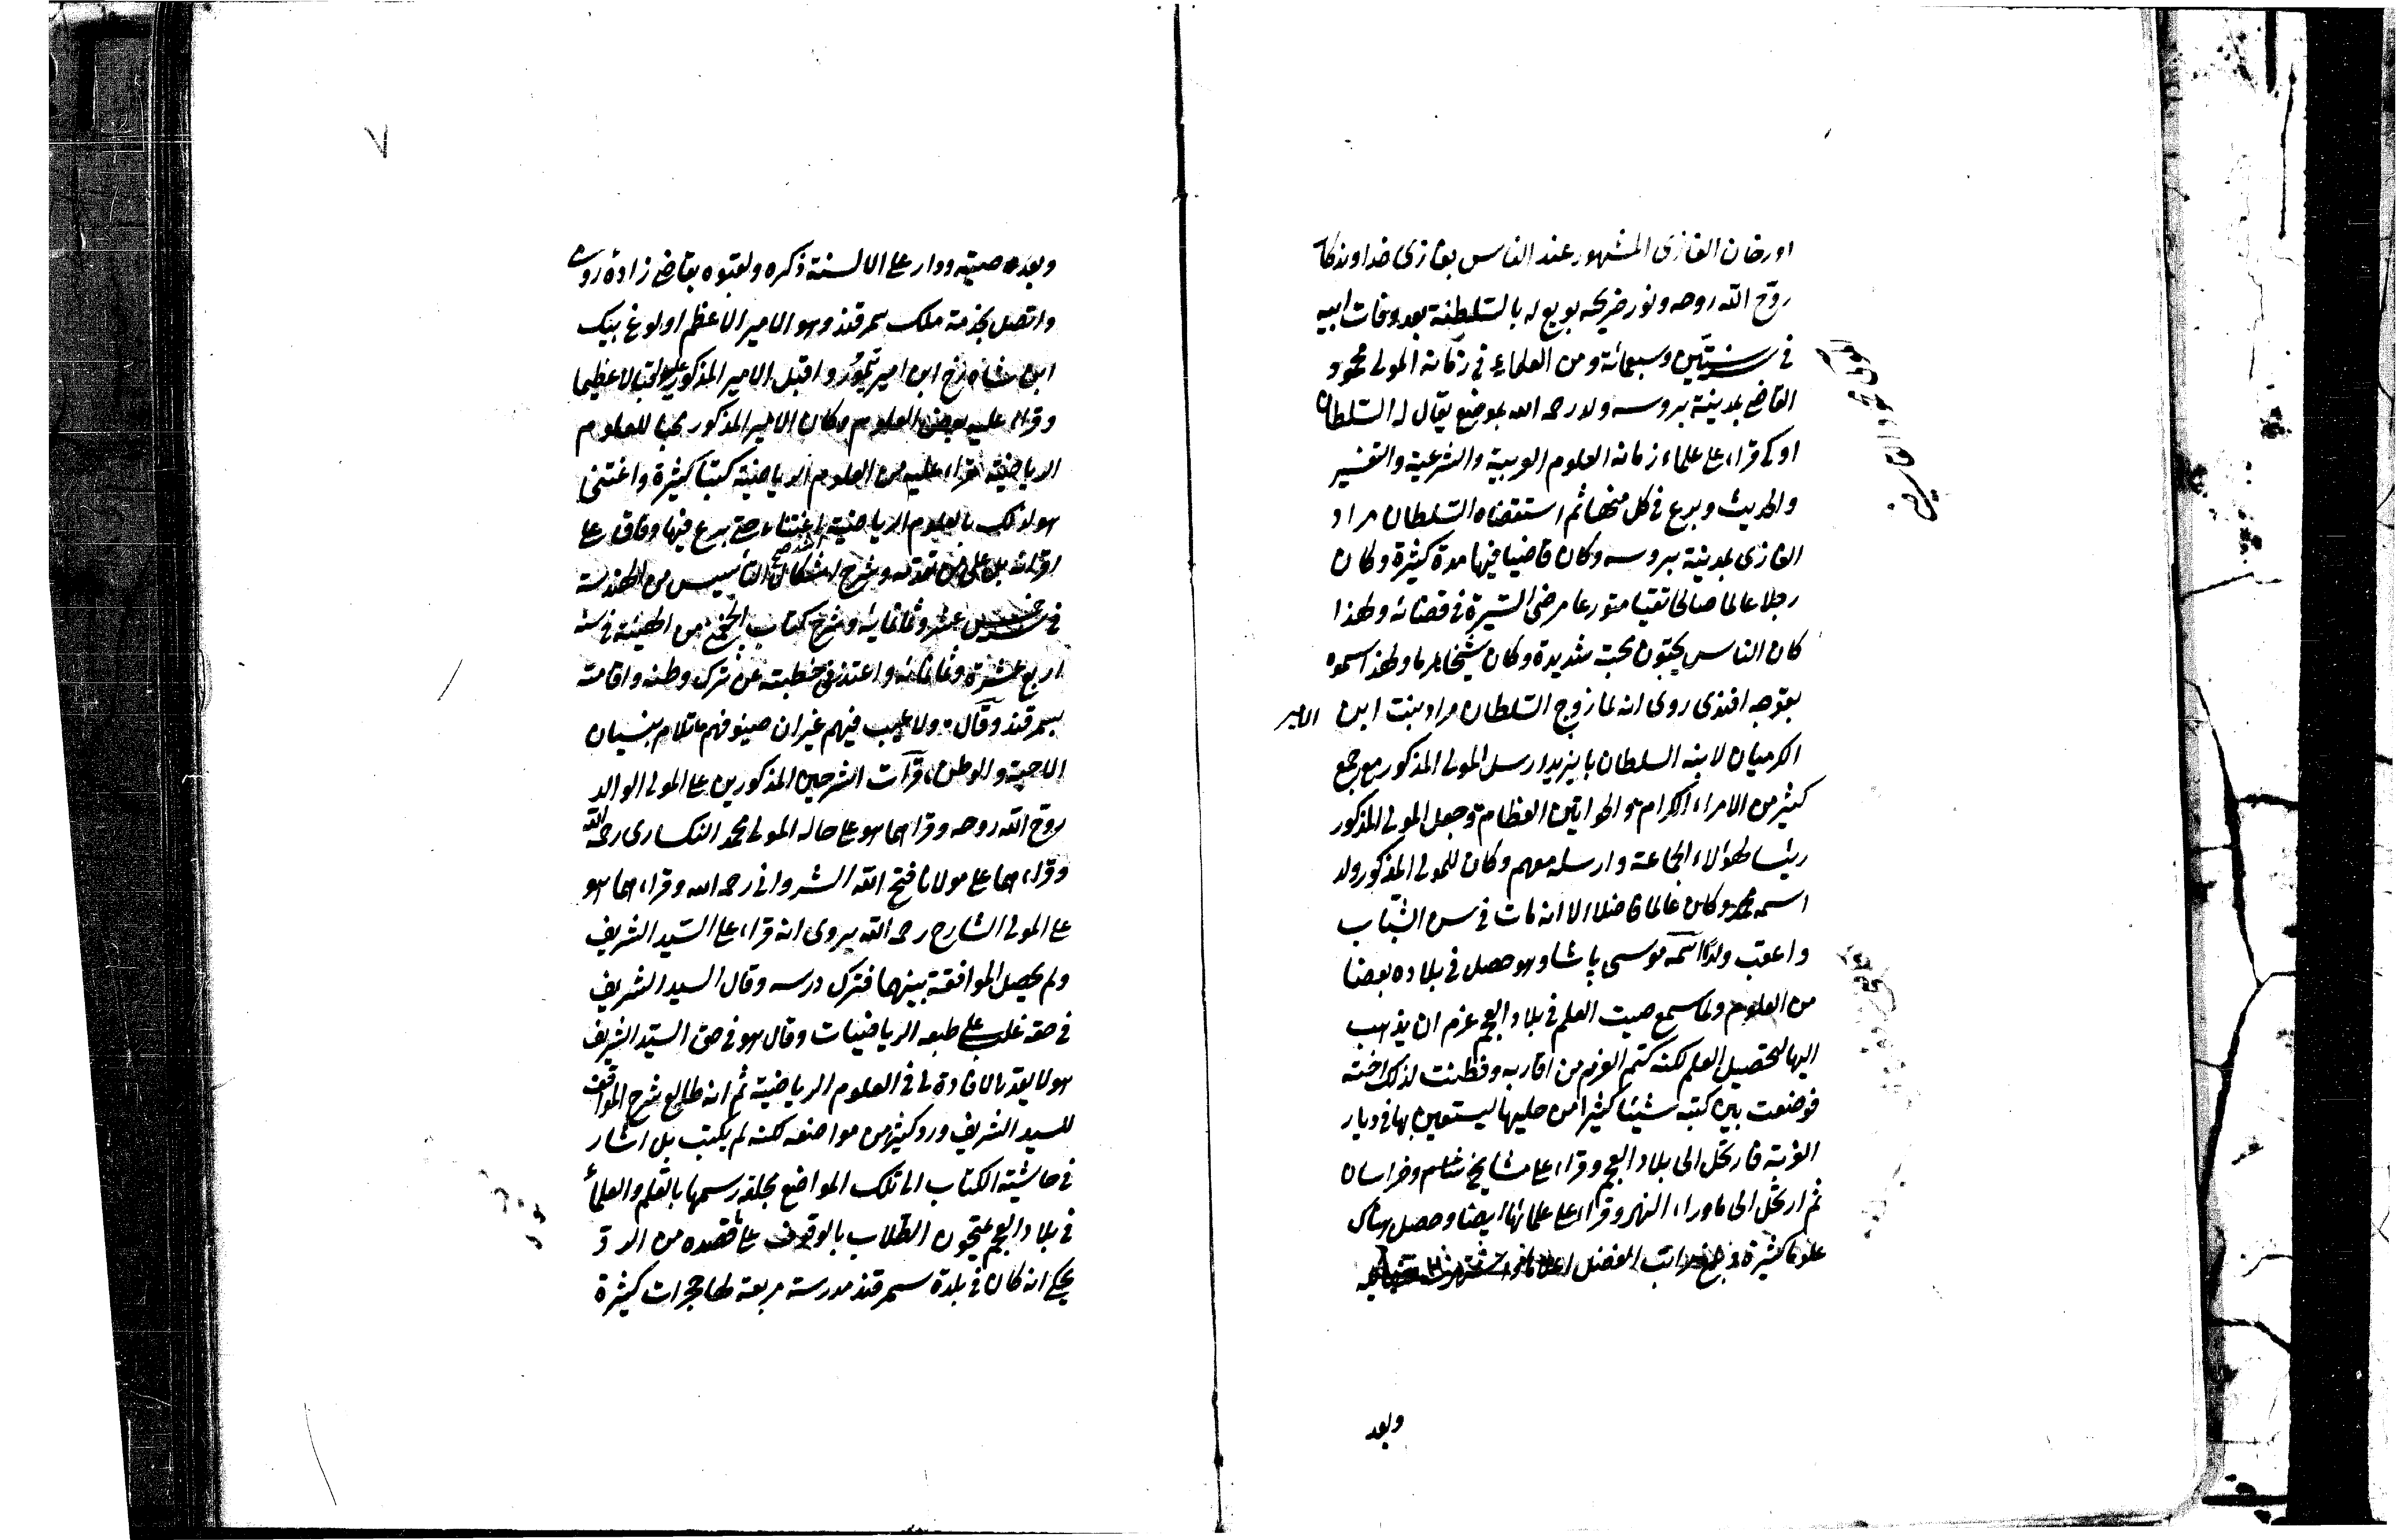 اورخان الغازى المشهور عند الناس بغازى خداوندكار
روّح الله روحه ونور ضريحه بويع له بالسّلطنة بعد وفات ابيه
فى سنة ستين وسبعمائة ومن العلماء فى زمانه المولى محمود
القاضى بمدينة بروسه ولد رحمه الله بموضع يقال له السّلطان
اوكى قراء على علماء زمانه العلوم العربية والشرعية والتفسير
والحديث وبرع فى كل منها ثم استقضاه السّلطان مراد
الغازى بمدينة بروسه وكان قاضيا فيها مدة كثيرة وكان
رجلا عالما صالحا تقيا متورعا مرضى السّيرة فى قضائه ولهذا
كان الناس يحبّون محبّة شديدة وكان شيخا هرما ولهذا سموه
بقوجه افندى روى انه لما زوج السّلطان مراد بنت ابن الامير
الكرميان لابنه السلطان بايزيد ارسل المولى المذكور مع جمع
كثير من الامراء الكرام والخواتين العظام وجعل المولى المذكور
رئيسا لهؤلاء الجماعة وارسله معهم وكان للمولى المذكور ولد
اسمه محمد وكان عالما فاضلا الا انه مات فى سن الشّباب
واعقب ولدًا اسمه موسى پاشا وهو حصل فى بلاده بعضا
من العلوم ولما سمع صيت العلم فى بلاد العجم عزم ان يذهب
اليها لتحصيل العلم لكنه كتم العزم من اقاربه وفطنت لذلك اخته
فوضعت بين كتبه شيئا كثيرا من حليها ليستعين بها فى ديار
الغربة فارتحل الى بلاد العجم وقراء على مشايخ خراسان
ثم ارتحل الى ماوراء النهر وقراء على علمائها ايضا وحصل هناك
علوما كثيرة وبلغ مراتب الفضل
وبعد
٧
وبعده صيته ودار على الالسنة ذكره ولقبوه بقاضى زاده رومى
واتصل بخدمة ملك سمرقند وهو الامير الاعظم اولوغ بيك
ابن شاه رخ ابن امير تيمور واقبل الامير المذكور عليه اقبالا عظيما
وقراء عليه بعض العلوم وكان الامير المذكور محبا للعلوم
الرياضية قراء عليه من العلوم الرياضية كتبا كثيرة واغتنى
هو لذلك بالعلوم الرياضية اغتناء حتى برع فيها وفاق على
اقرانه بل على من تقدمه وشرح اشكال التاسيس من الهندسة
فى سنة خمس عشر وثمانمايه وشرح كتاب الجغمنى من الهيئة فى سنه
اربع عشرة وثمانمائه واعتذر فى خطبته عن ترك وطنه واقامته
بسمرقند وقال ولا عيب فيهم غير ان ضيوفهم تلام بنسيان
الاحبة والوطن قرأت الشرحين المذكورين على المولى الوالد
روّح الله روحه وقراهما هو على خاله المولى محمد النكسارى رحمه الله
وقراءهما على مولانا فتح الله الشروانى رحمه الله وقراءهما هو
على المولى الشارح رحمه الله يروى انه قراء على السّيد الشريف
ولم يحصل الموافقة بينهما فترك درسه وقال السيد الشريف
فى حقه غلب على طبعه الرياضيات وقال هو فى حق السيّد الشريف
هو لا يقدر بالافادة لى فى العلوم الرياضية ثم انه طالع شرح المواقف
للسيد الشريف ورد كثيرا من مواضعه لكنه لم يكتب بل اشار
فى حاشية الكتاب الى تلك المواضع بحلقة رسمها بالقلم والعلمأ
فى بلاد العجم يمتحنون الطّلاب بالوقوف على ما قصده من الرد
يحكى انه كان فى بلدة سمرقند مدرسة مربعة لها حجرات كثيرة